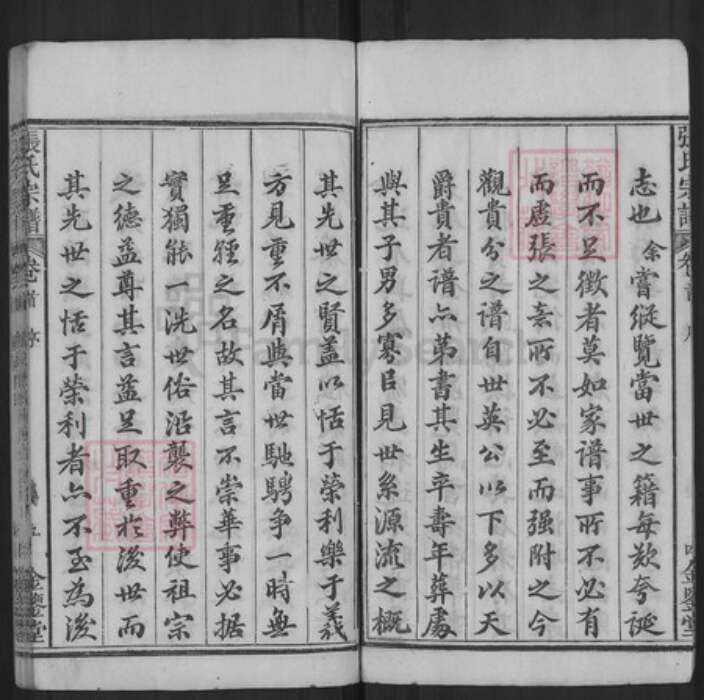 張氏宗譜 卷首 序 金鑒堂
志也余嘗縱覽當世之籍每欺夸誕
而不足徵者莫如家谱事所不必有
而虛張之意所不必至而强附之今
觀貴分之谱自世英公以下多以天
爵貴者谱亦苐書其生卒壽年葬處
與其子男多寡巨見世系源流之概
其先世之賢盖以恬于榮利樂于義
方見重不屑與當世馳騁争一時無
足重輕之名故其言不崇華事必据
實獨能一洗世俗沿襲之弊使祖宗
之德益尊其言益足取重於後世而
其先世之恬于榮利者亦不至為後
張氏宗譜 卷首 序 金鑒堂